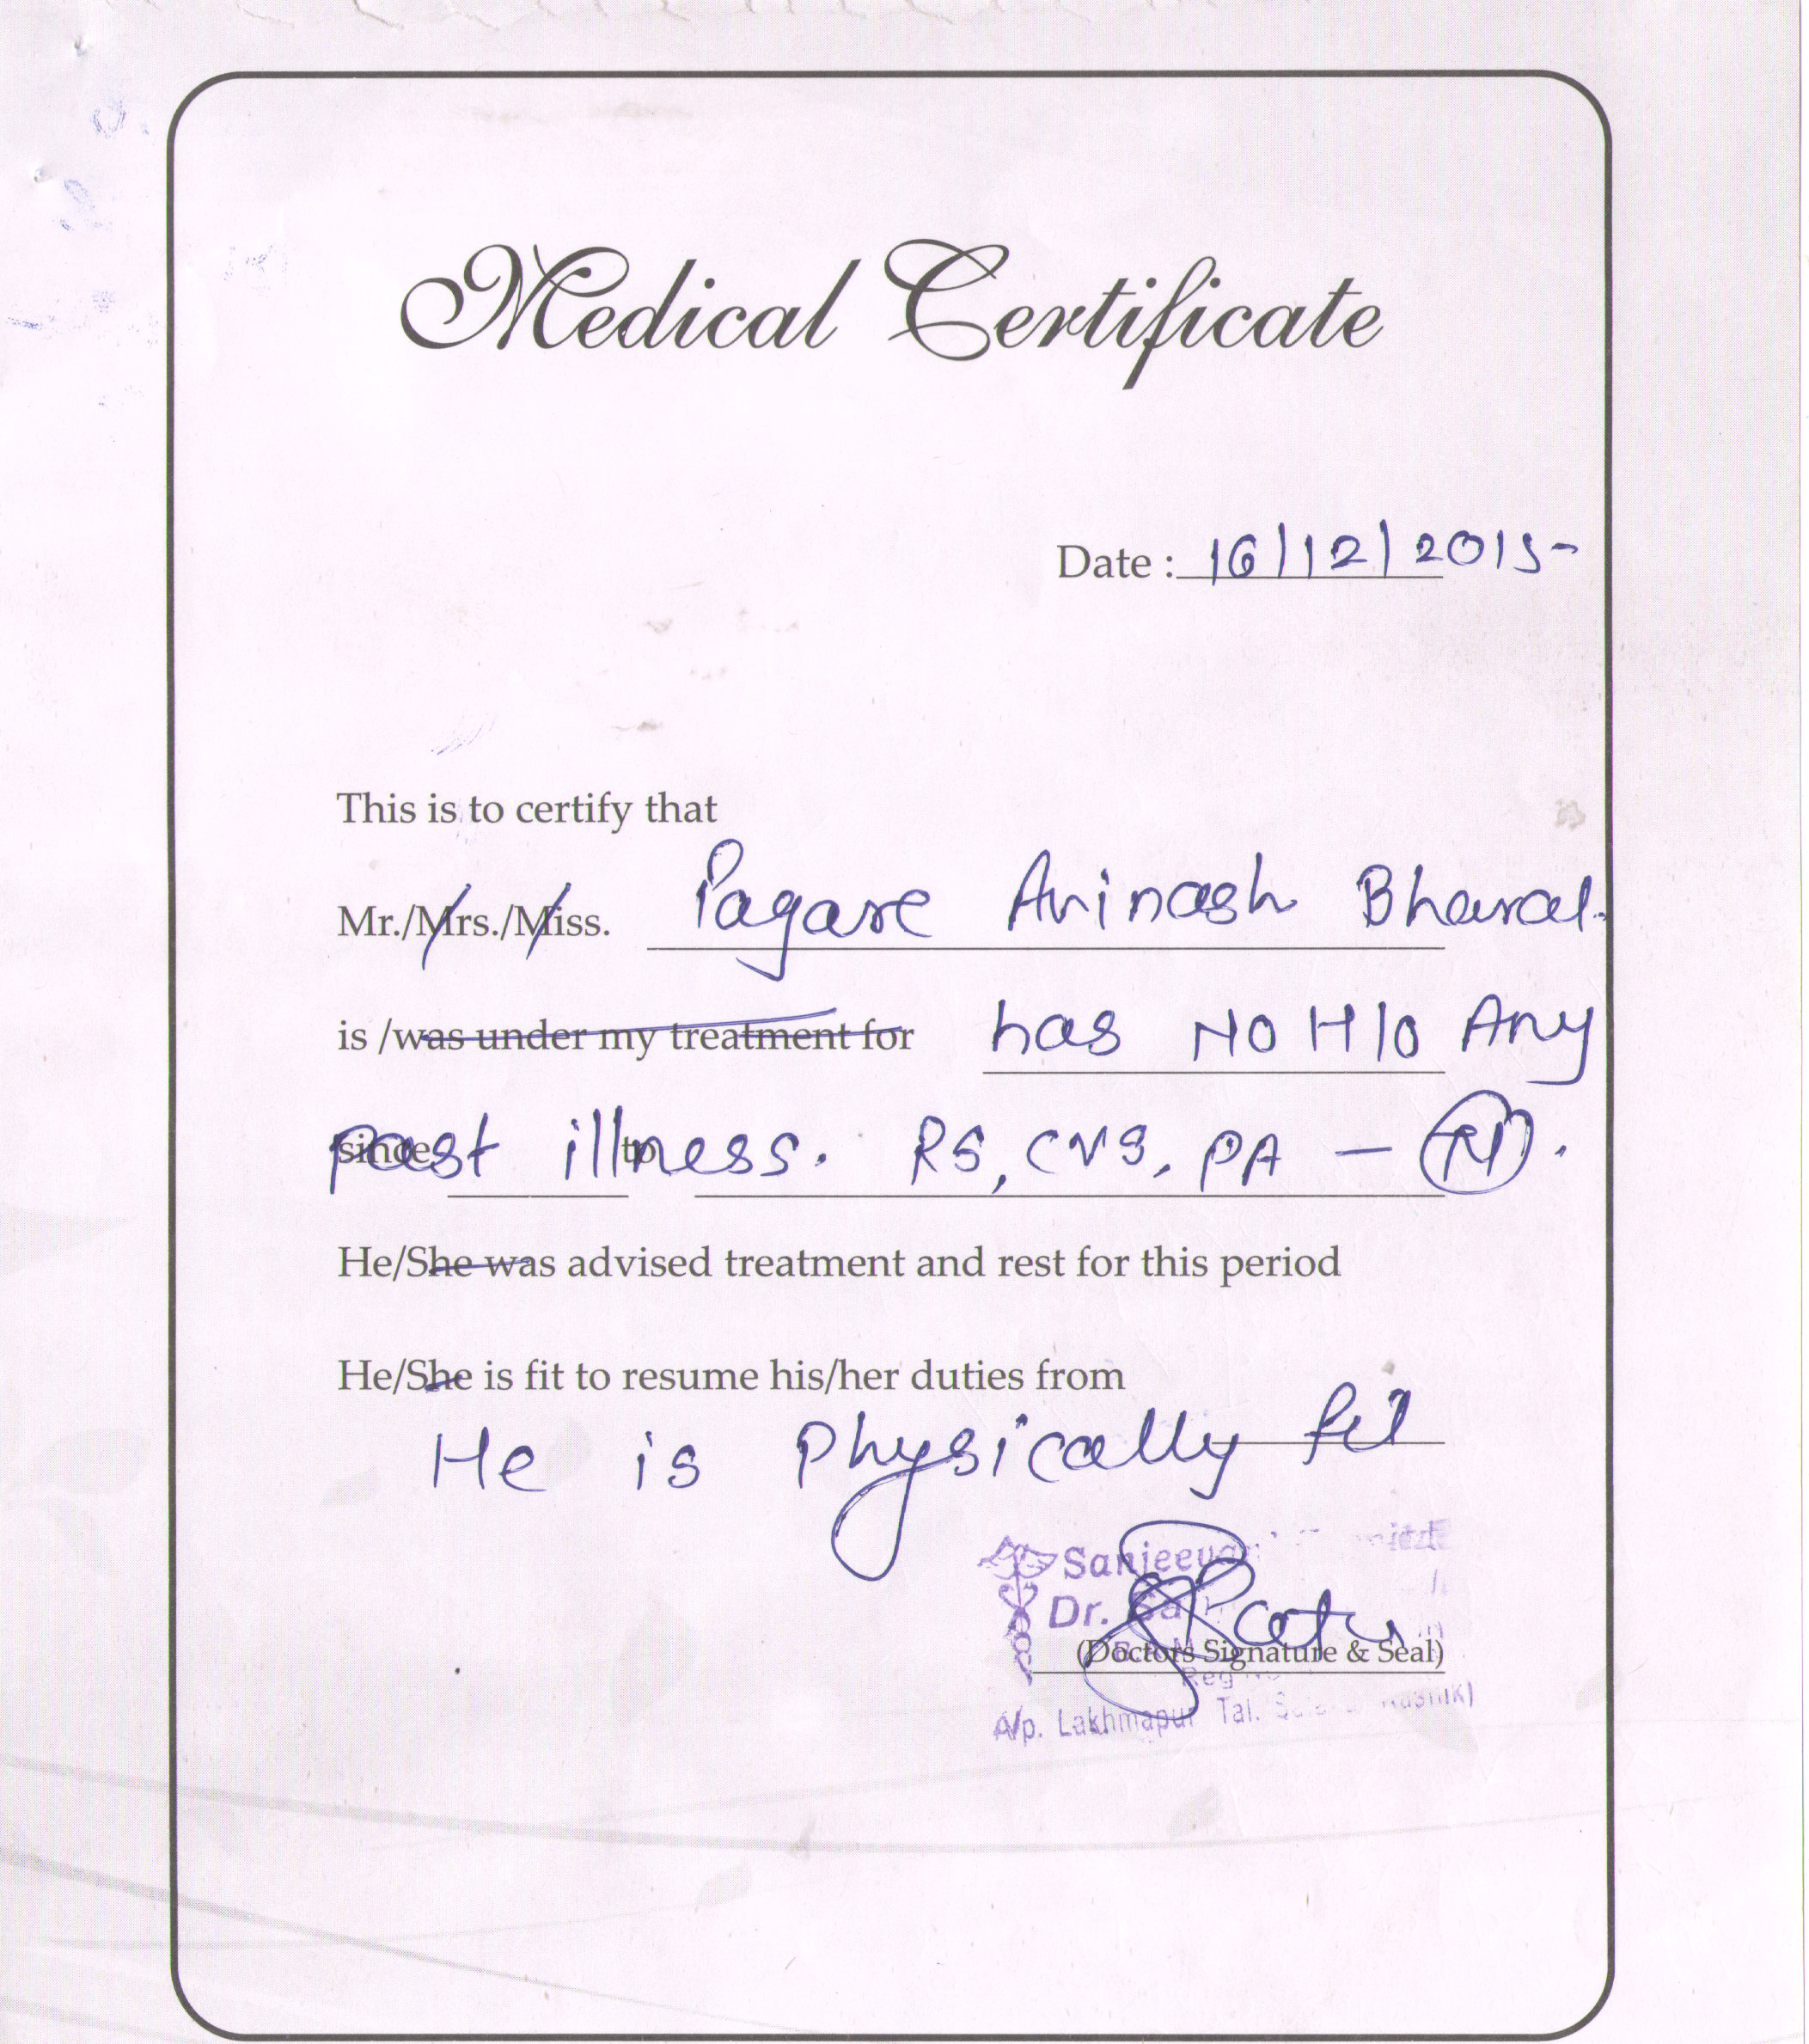 Medical Certificate
Date : 16/12/2015
This is to certify that
Mr./Mrs./Miss. Pagare Avinash Bharat.
is /was under my treatment for has NO H/o Any
past illness. RS, CVS, PA –
He/She was advised treatment and rest for this period
He/She is fit to resume his/her duties from
He is Physically fit
Dr.
(Doctors Signature & Seal)
Reg
A/p. Lakhmapur Tal.